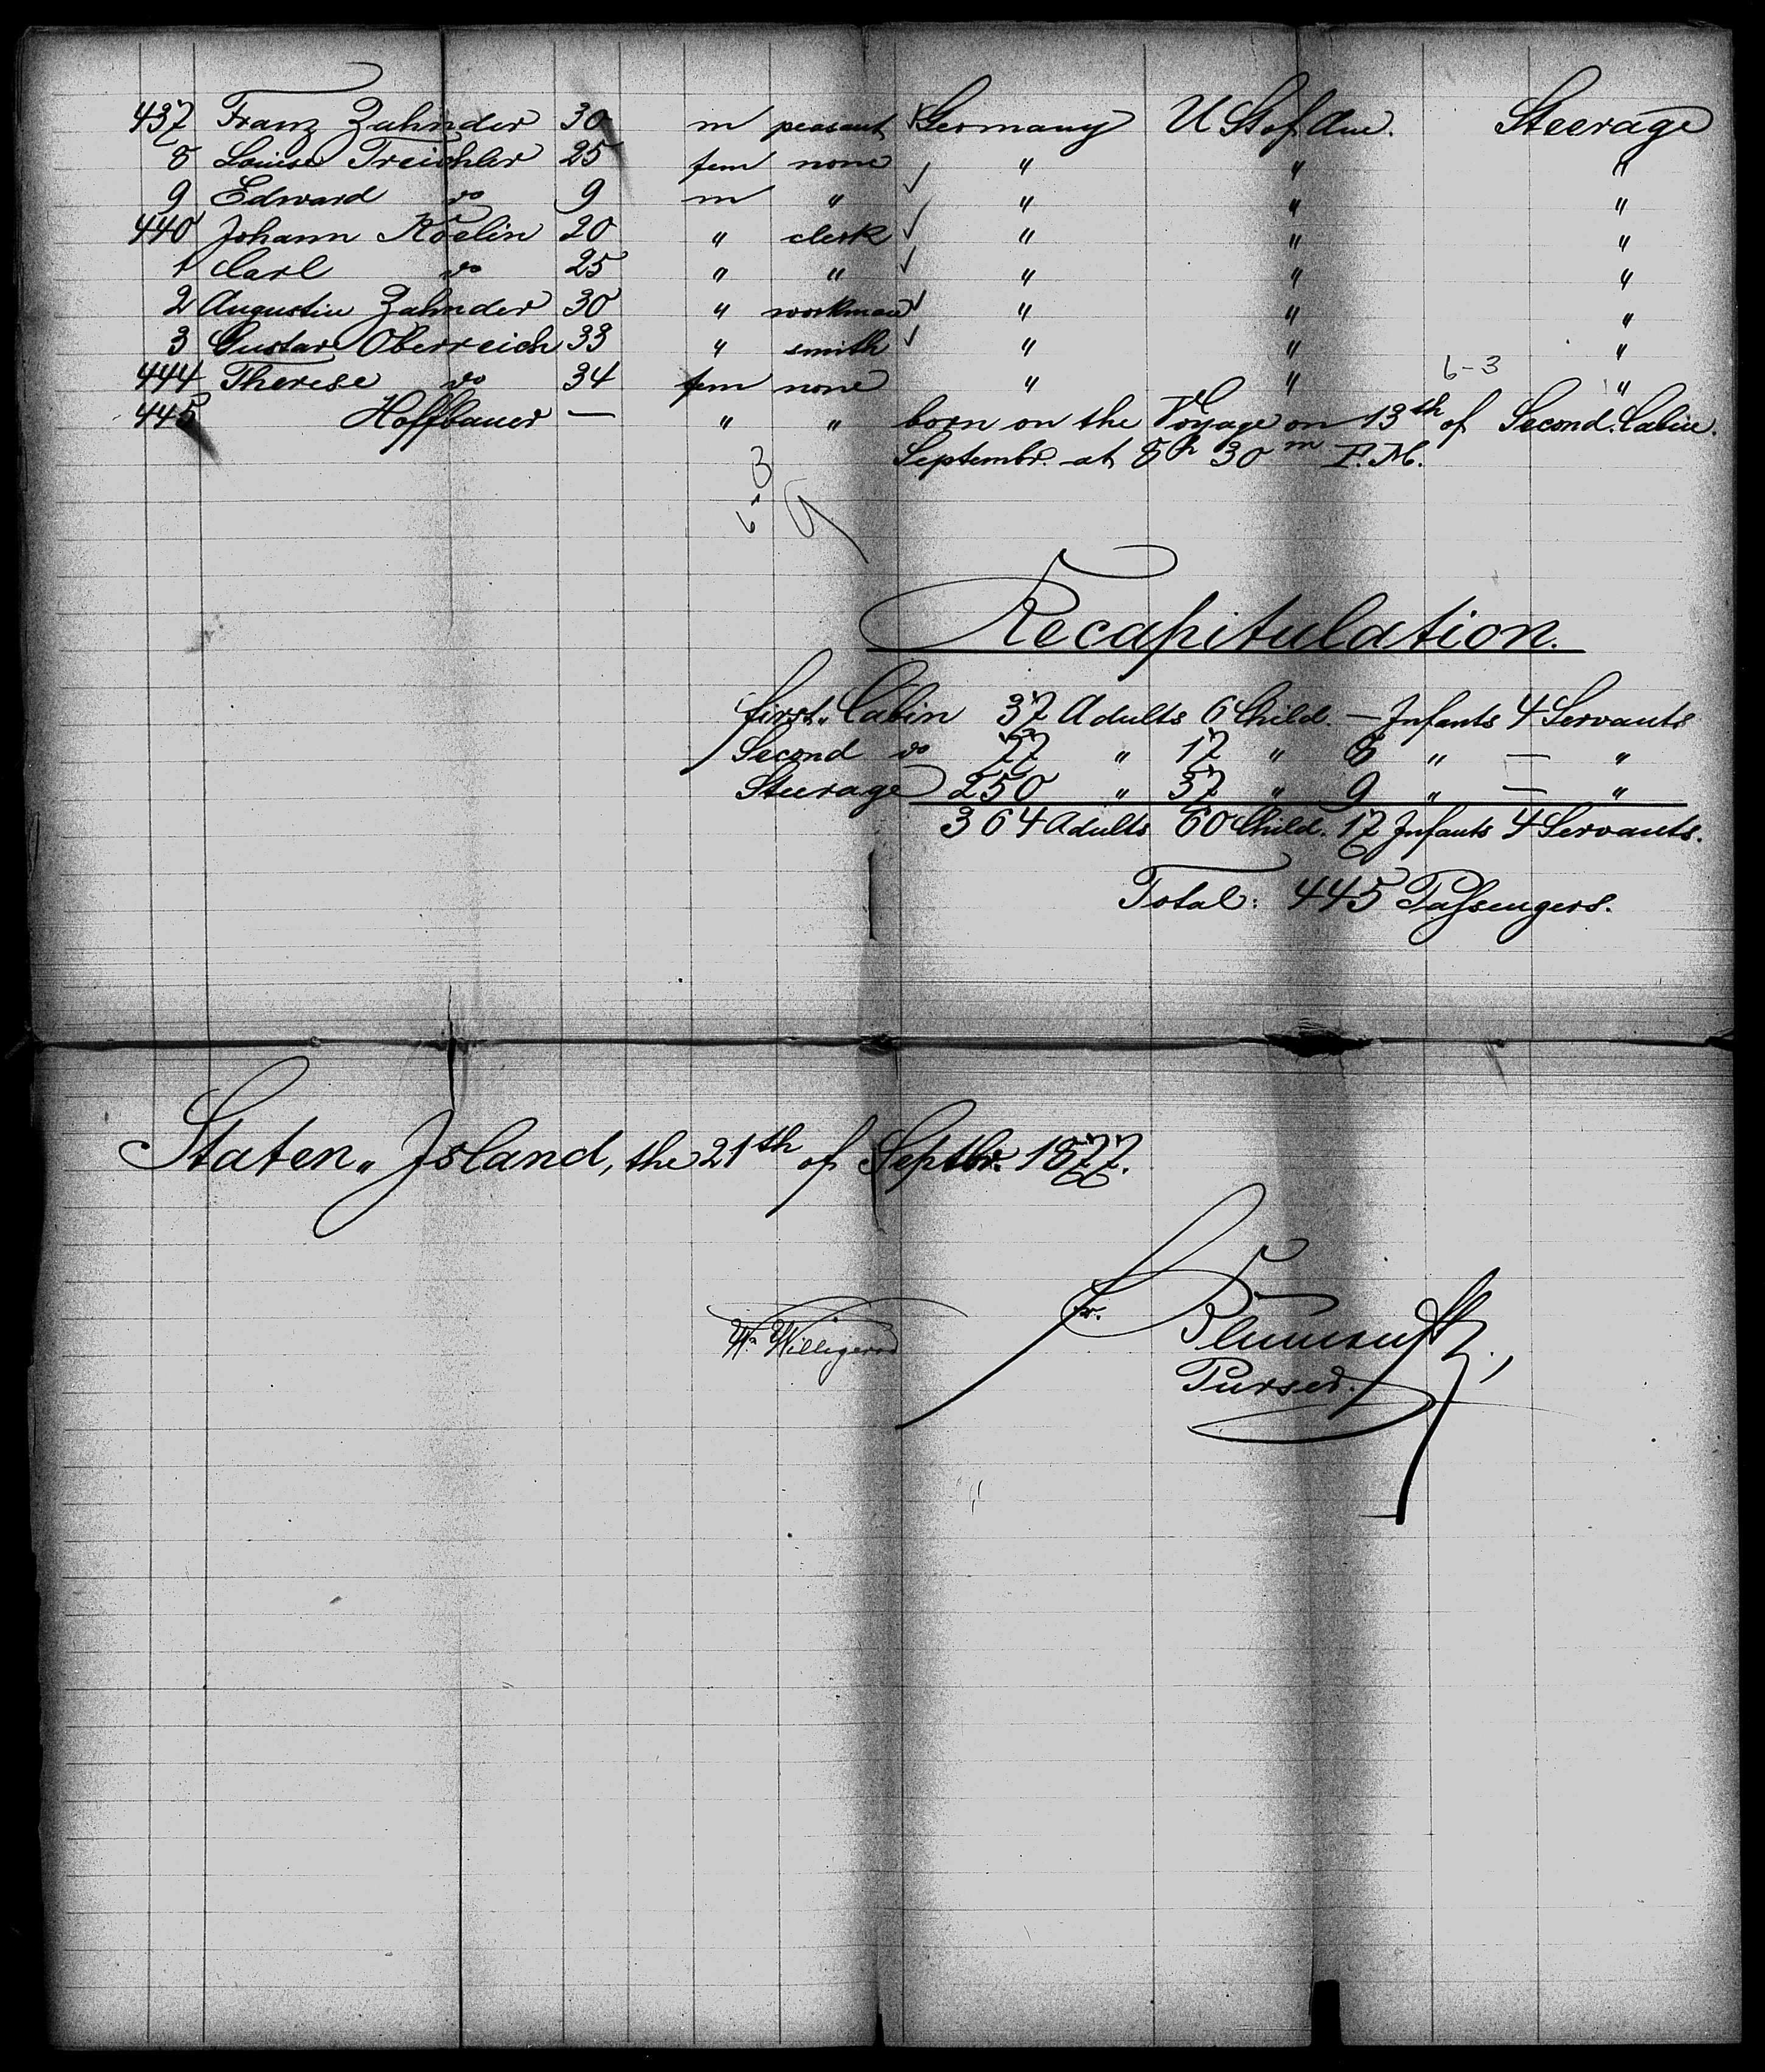 437 Franz Zahnder 30 m peasant Germany U St of Am. Steerage
8 Louise Treichler 25 fem none " " "
9 Edward do 9 m " " " "
440 Johann Koelin 20 " clerk " " "
1 Carl do 25 " " " " "
2 Augustin Zahnder 30 " workman " " "
3 Gustav Oberreich 33 " smith " " "
6-3
444 Therese do 34 fem none " " "
445 Hoffbauer — " " born on the Voyage on 13th of Second Cabin.
Septembr. at 8h 30m P.M.
Recapitulation.
First „ Cabin 37 Adults 6 Child. — Infants 4 Servants
Second do 77 " 17 " 8 " — "
Steerage 250 " 37 " 9 " — "
364 Adults 60 Child. 17 Infants 4 Servants.
Total: 445 Passengers.
Staten „ Island, the 21th of Septbr. 1877.
W. Willigerod
Fr.
Purser.